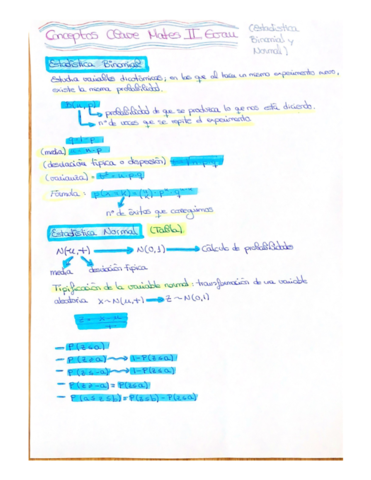 Conceptos Clave Mates II Ebau (Estadística Binomial y Normal)
Estadística Binomial:
Estudia variables dicotómicas; en las que al hacer un mismo experimento n veces, existe la misma probabilidad.
B(n, p)
probabilidad de que se produzca lo que nos está diciendo.
nº de veces que se repite el experimento
q = 1 - p
(media)
(desviación típica o dispersión)
(varianza) = σ² = n·p·q
Fórmula:
nº de éxitos que conseguimos
Estadística Normal (Tabla)
N(μ, σ) → N(0,1) → Cálculo de probabilidades
media desviación típica
Tipificación de la variable normal: transformación de una variable
aleatoria x ~ N(μ, σ) → z ~ N(0,1)
- P(z ≤ a)
- P(z ≥ a) → 1 - P(z ≤ a)
- P(z ≤ -a) → 1 - P(z ≤ a)
- P(z ≥ -a) = P(z ≤ a)
- P(a ≤ z ≤ b) = P(z ≤ b) - P(z ≤ a)